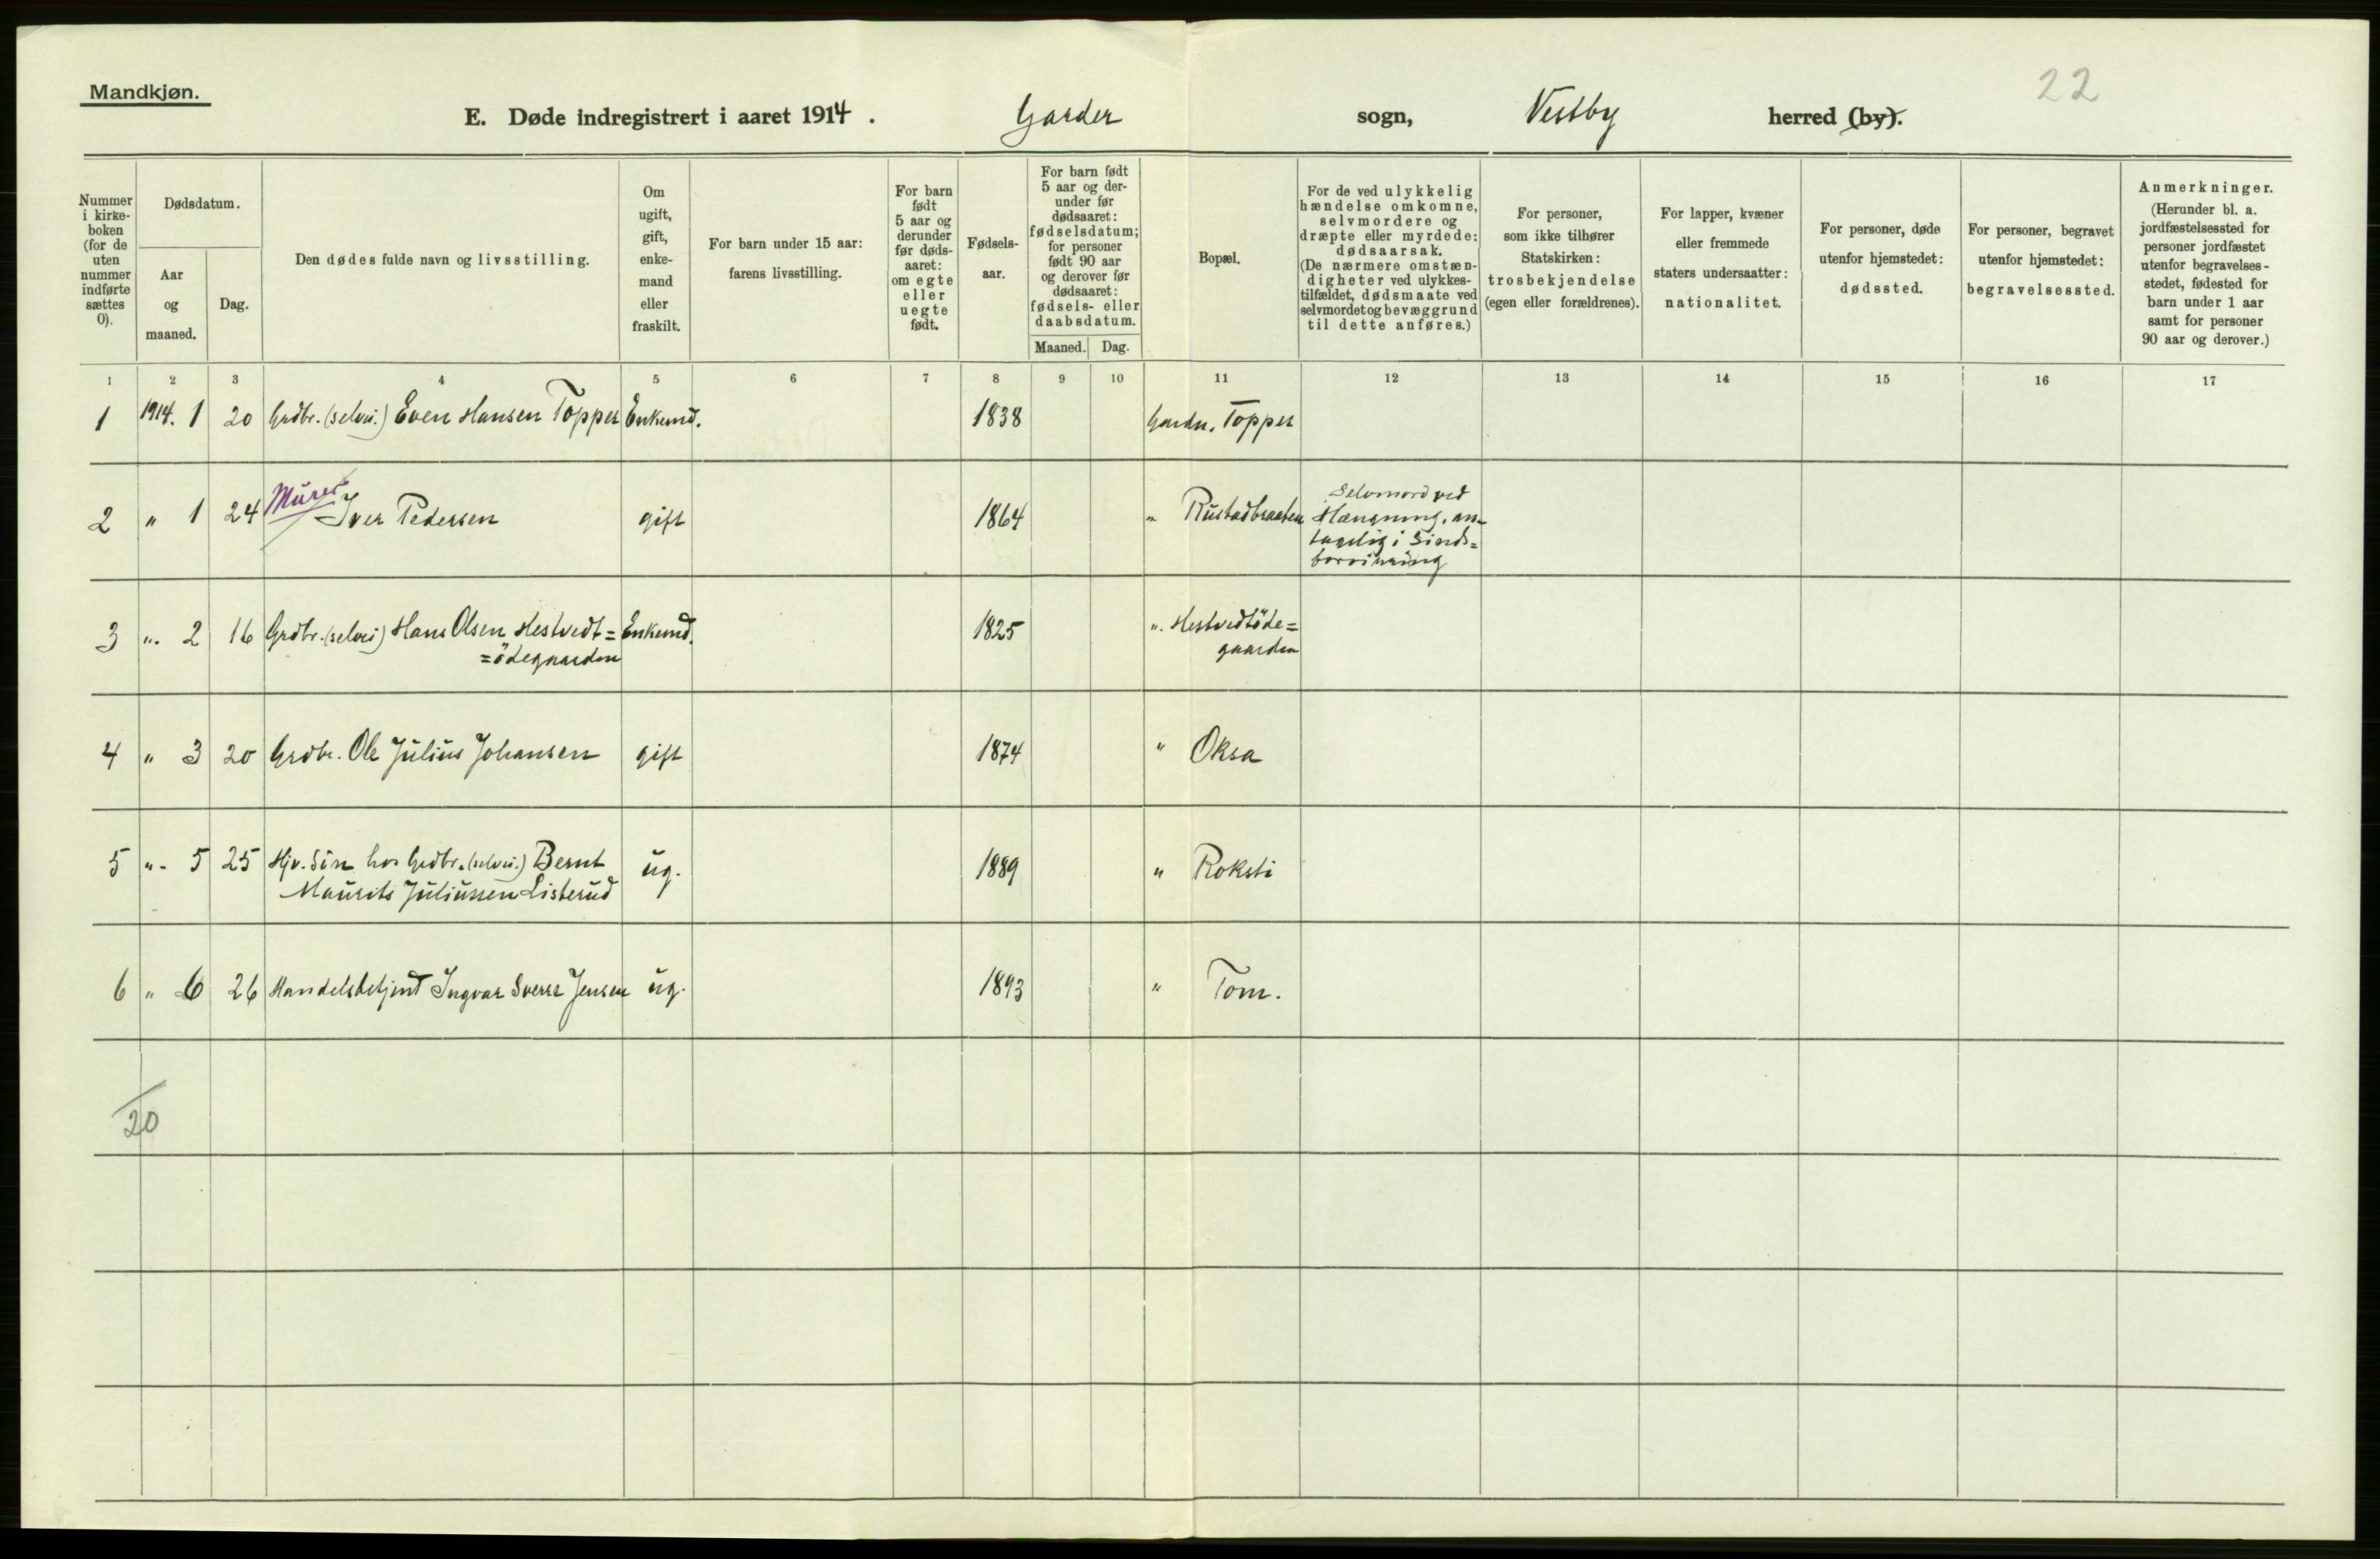 Mandkjøn.
22
E. Døde indregistrert i aaret 1914. Garder sogn, Vestby herred (by).
Nummer i kirke-boken (for de uten nummer indførte sættes 0).
Dødsdatum.
Aar og maaned.
Dag.
Den dødes fulde navn og livsstilling.
Om ugift, gift, enke-mand eller fraskilt.
For barn under 15 aar: farens livsstilling.
For barn født 5 aar og derunder før døds-aaret: om egte eller uegte født.
Fødsels-aar.
For barn født 5 aar og der-under før dødsaaret: fødselsdatum; for personer født 90 aar og derover før dødsaaret: fødsels- eller daabsdatum.
Maaned. Dag.
Bopæl.
For de ved ulykkelig hændelse omkomne, selvmordere og dræpte eller myrdede: dødsaarsak. (De nærmere omstæn-digheter ved ulykkes-tilfældet, dødsmaate ved selvmordet og bevæggrund til dette anføres.)
For personer, som ikke tilhører Statskirken: trosbekjendelse (egen eller forældrenes).
For lapper, kvæner eller fremmede staters undersaatter: nationalitet.
For personer, døde utenfor hjemstedet: dødssted.
For personer, begravet utenfor hjemstedet: begravelsessted.
Anmerkninger. (Herunder bl. a. jordfæstelsessted for personer jordfæstet utenfor begravelses-stedet, fødested for barn under 1 aar samt for personer 90 aar og derover.)
1 2 3 4 5 6 7 8 9 10 11 12 13 14 15 16 17
1 1914. 1 20 Grdbr. (selvei.) Even Hansen Topper Enkemd. 1838 Garder. Topper
2 " 1 24 Murer Iver Pedersen gift 1864 " Rustadbraaten Selvmord ved
Hængning, an-
tagelig i Sinds=
forvirring
3 " 2 16 Grdbr. (selvei) Hans Olsen Hestvedt= Enkemd. 1825 " Hestvedtöde=
=ödegaarden gaarden
4 " 3 20 Grdbr. Ole Julius Johansen gift 1874 " Oksa
5 " 5 25 Hjv. Sön hos Grdbr. (selvei.) Bernt ug. 1889 " Roksti
Maurits Juliussen Listerud
6 " 6 26 Handelsbetjent Ingvar Sverre Jensen ug. 1893 " Tom.
20